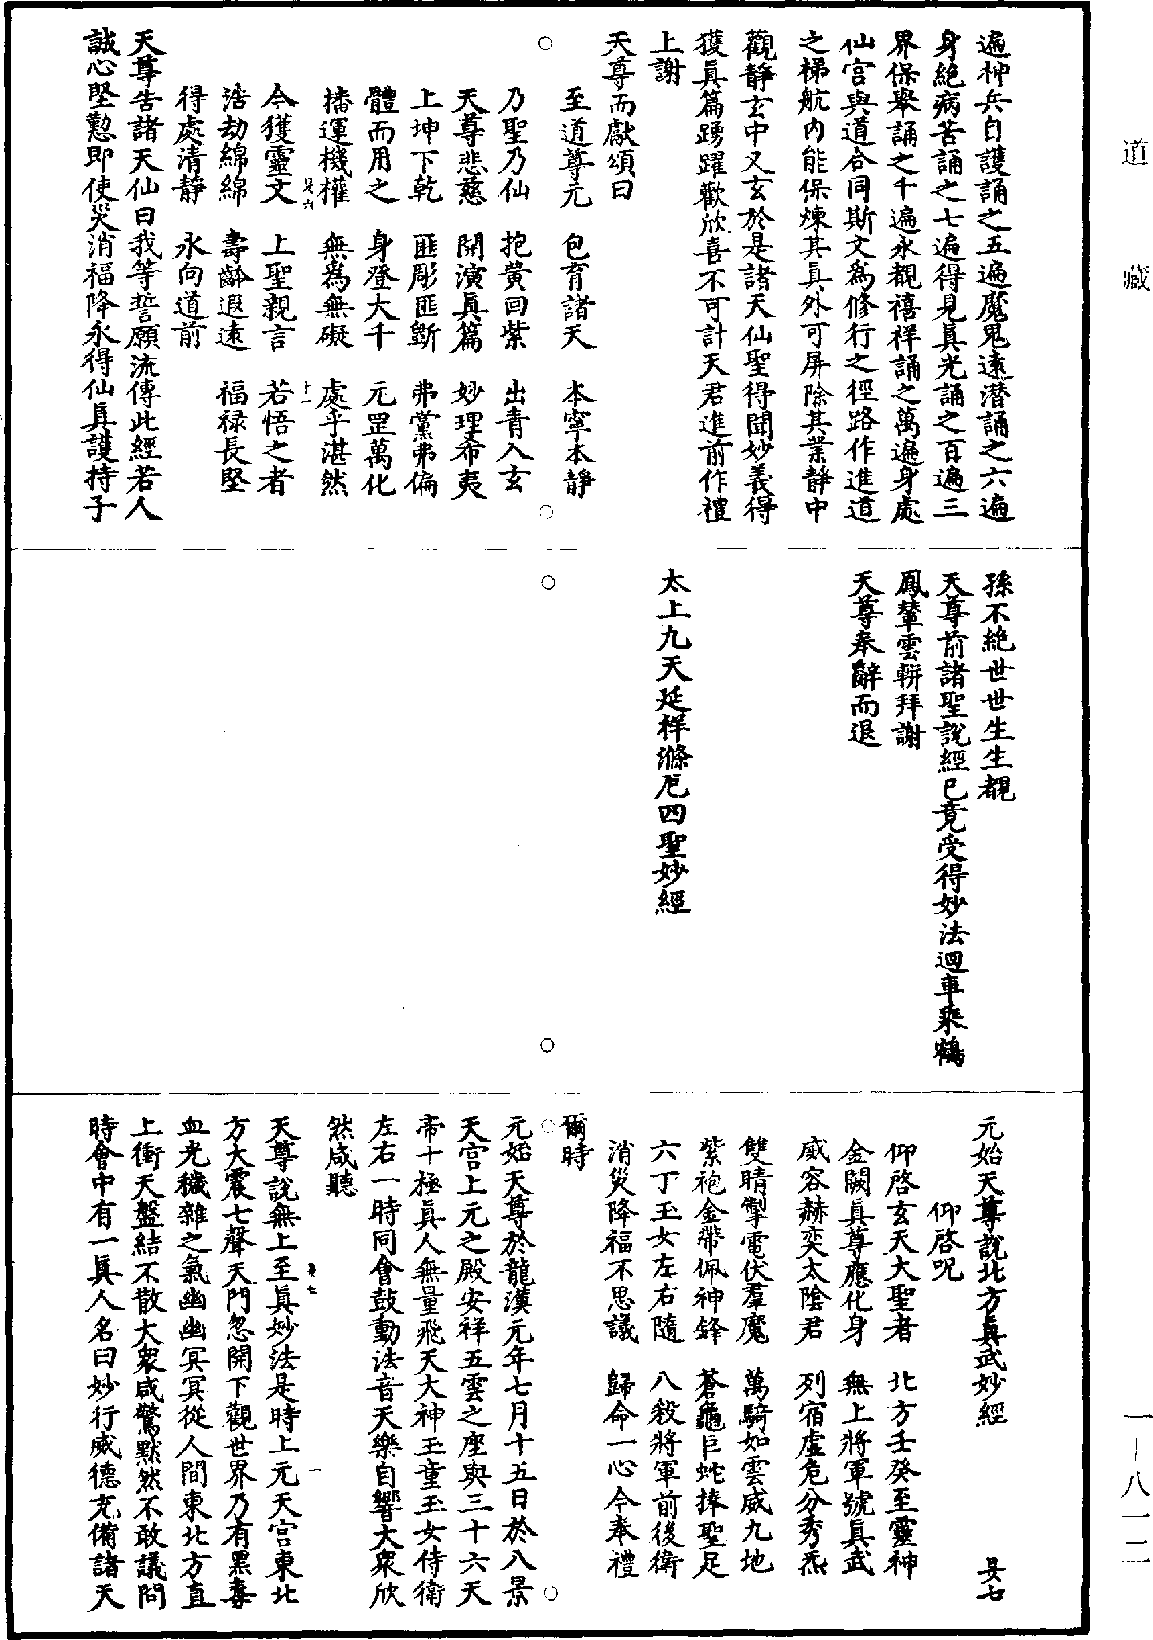 道藏
一-八一二
遍神兵自護誦之五遍魔鬼遠潛誦之六遍
身絶病苦誦之七遍得見真光誦之百遍三
界保舉誦之千遍永覩禧祥誦之萬遍身處
仙宮與道合同斯文為修行之徑路作進道
之梯航内能保煉其真外可屏除其業靜中
觀靜玄中又玄於是諸天仙聖得聞妙義得
獲真篇踴躍歡欣喜不可計天君進前作禮
上謝
天尊而獻頌曰
至道尊元　包育諸天　本寧本靜
乃聖乃仙　抱黄回紫　出青入玄
天尊悲慈　開演真篇　妙理希夷
上坤下乾　匪彫匪斵　弗黨弗偏
體而用之　身登大千　元罡萬化
播運機權　無為無礙　處乎湛然
今獲靈文　上聖親言　若悟之者
浩劫綿綿　壽齡遐遠　福禄長堅
得處清靜　永向道前
天尊告諸天仙曰我等誓願流傳此經若人
誠心堅懃即使災消福降永得仙真護持子
孫不絶世世生生覩
天尊前諸聖說經已竟受得妙法迴車乘鶴
鳳輦雲軿拜謝
天尊奉辭而退
太上九天延祥滌厄四聖妙經
元始天尊說北方真武妙經　七
仰啓呪
仰啓玄天大聖者　北方壬癸至靈神
金闕真尊應化身　無上將軍號真武
威容赫奕太陰君　列宿虚危分秀炁
雙睛掣電伏羣魔　萬騎如雲威九地
紫袍金帶佩神鋒　蒼龜巨蛇捧聖足
六丁玉女左右隨　八殺將軍前後衛
消災降福不思議　歸命一心今奉禮
爾時
元始天尊於龍漢元年七月十五日於八景
天宮上元之殿安祥五雲之座與三十六天
帝十極真人無量飛天大神玉童玉女侍衛
左右一時同會鼓動法音天樂自響大衆欣
然咸聽
天尊說無上至真妙法是時上元天宮東北
方大震七聲天門忽開下觀世界乃有黑毒
血光穢雜之氣幽幽冥冥從人間東北方直
上衝天盤結不散大衆咸驚默然不敢議問
時會中有一真人名曰妙行威德充備諸天